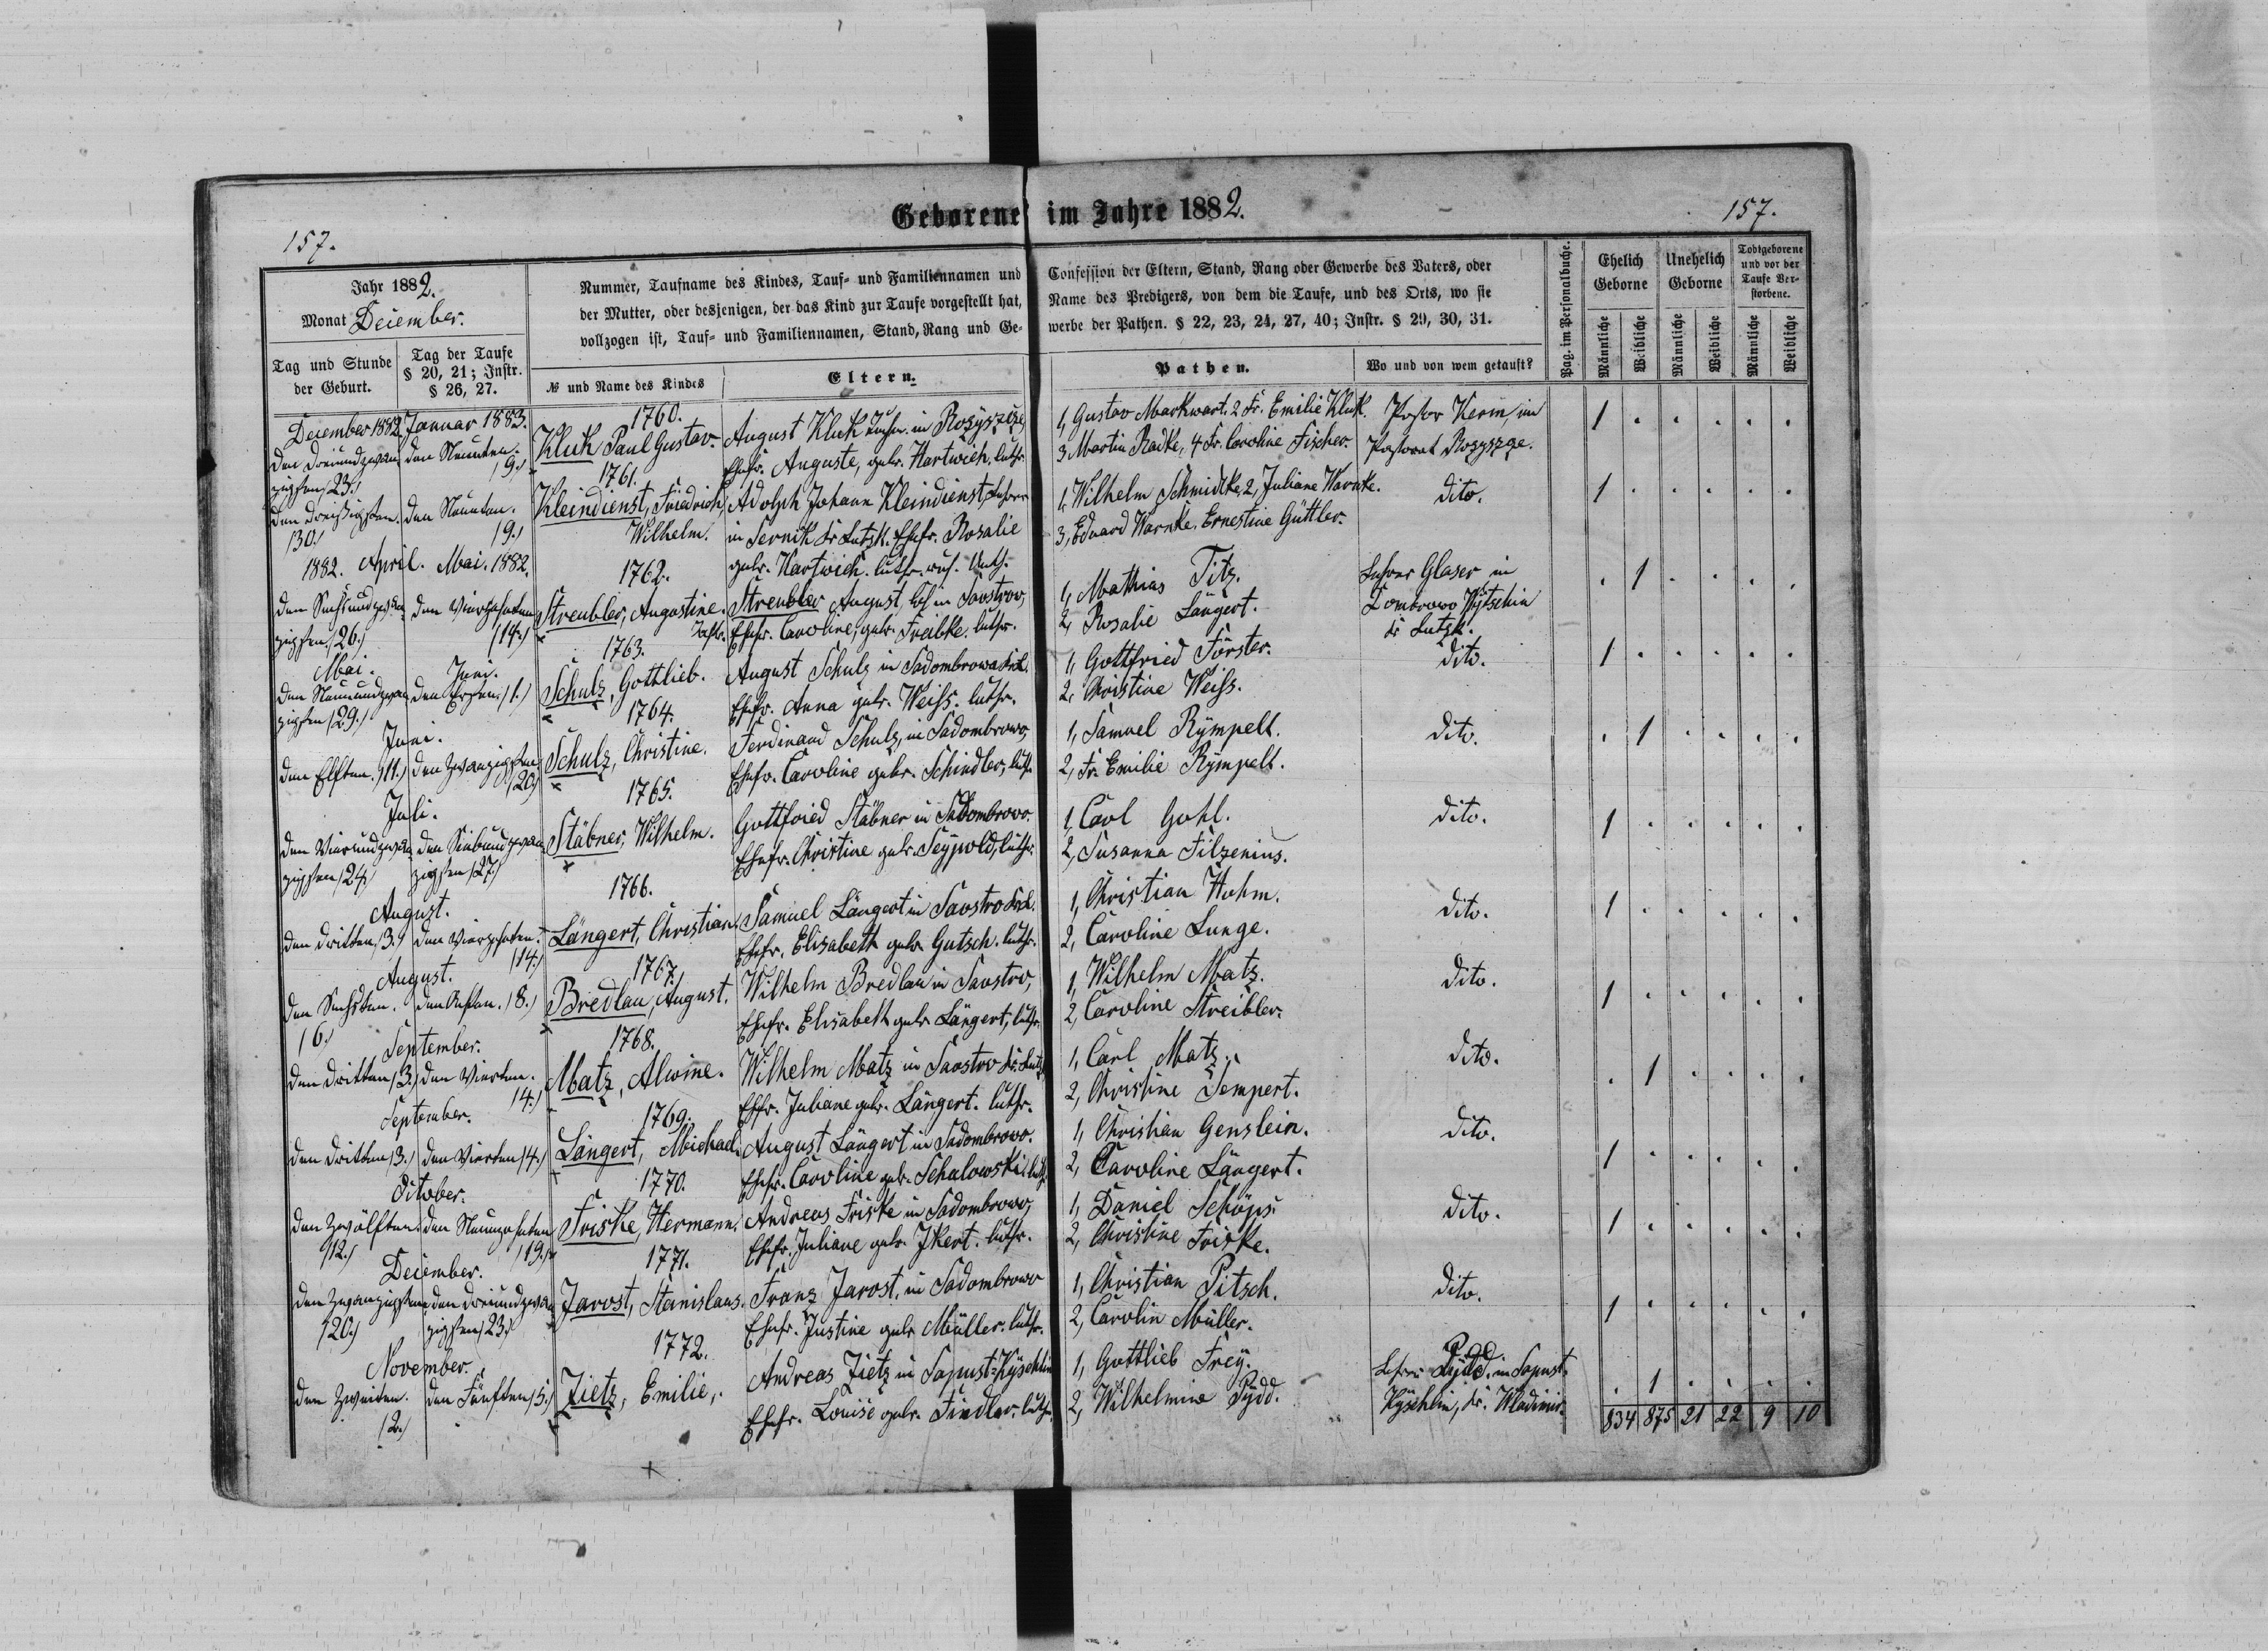 Geborene im Jahre 1882.
157.
157.
Jahr 1882.
Monat December.
Tag und Stunde der Geburt.
Tag der Taufe § 20, 21; Instr. § 26, 27.
Nummer, Taufname des Kindes, Tauf- und Familiennamen und
der Mutter, oder desjenigen, der das Kind zur Taufe vorgestellt hat,
vollzogen ist, Tauf- und Familiennamen, Stand, Rang und Ge-
№ und Name des Kindes
Eltern.
Confession der Eltern, Stand, Rang oder Gewerbe des Vaters, oder
Name des Predigers, von dem die Taufe, und des Orts, wo sie
werbe der Pathen. § 22, 23, 24, 27, 40; Instr. § 29, 30, 31.
Pathen.
Wo und von wem getauft?
Pag. im Personalbuche.
Ehelich Geborne
Unehelich Geborne
Todtgeborene und vor der Taufe Verstorbene.
Männliche
Weibliche
Männliche
Weibliche
Männliche
Weibliche
December 1882. Januar 1883.
den dreiundzwan
zigsten /23./
den Neunten.
/9./
1760.
Kluk Paul Gustav.
August Kluk in Rozyszcze,
Ehefr. Auguste, geb. Hartwich. luth.
1, Gustav Markwart. 2 Fr. Emilie Kluk.
3 Martin Radke, 4 Fr. Caroline Fischer.
Pastor Kerm, im
Pastorat Rozyszge.
1 . . . . .
den dreißigsten.
/30./
den Neunten.
/9./
1761.
Kleindienst, Friedrich,
Wilhelm.
Adolph Johann Kleindienst, Lehrer
in Sernik Kr Lutzk. Ehefr. Rosalie
geb. Hartwich. luth.
1, Wilhelm Schmidtke, 2, Juliane Warnke.
3, Eduard Warnke. Ernestine Güttler.
dito.
1 . . . . .
1882. April. Mai. 1882.
den Sechsundzwan
zigsten /26./
den Vierzehnten
/14./
1762.
Streubler, Augustine.
Streubler August, in Savstrow,
Ehefr. Caroline, geb. Freibke. luth.
1, Mathias Titz.
2, Rosalie Längert.
Lehrer Glaser in
Kr Lutzk.
. 1 . . . .
Mai. Juni.
den Neunundzwan
zigsten /29./
den Ersten /1./
1763.
Schulz, Gottlieb.
August Schulz in Sadombrowa
Ehefr. Anna geb. Weiss. luth.
1, Gottfried Förster.
2, Christine Weiss.
dito.
1 . . . . .
Juni.
den Elften. /11./
den Zwanzigsten
/20./
1764.
Schulz, Christine.
Ferdinand Schulz, in Sadombrowo,
Ehefr. Caroline geb. Schindler, luth.
1, Samuel Rympelt.
2, Fr. Emilie Rympelt.
dito.
. 1 . . . .
Juli.
den Vierundzwan
zigsten /24./
den Siebundzwan
zigsten /27./
1765.
Stäbner, Wilhelm.
Gottfried Stäbner in Sadombrowo.
Ehefr. Christine geb. Seypold, luth.
1, Carl Gohl.
2, Susanna Filzenius.
dito.
1 . . . . .
August.
den dritten /3./
den Vierzehnten
/14./
1766.
Längert, Christian.
Samuel Längert in Savstro
Ehefr. Elisabeth geb. Gutsch. luth.
1, Christian Huhm.
2, Caroline Lunge.
dito.
1 . . . . .
August.
den Sechsten.
/6./
den Achten. /8./
1767.
Bredlau, August.
Wilhelm Bredlau in Savstro,
Ehefr. Elisabeth geb. Längert, luth.
1, Wilhelm Matz.
2, Caroline Streibler.
dito.
1 . . . . .
September.
den dritten /3./
den Vierten.
/4./
1768.
Matz, Alwine.
Wilhelm Matz in Savstro Kr. Lutz.
Ehefr. Juliane geb. Längert. luth.
1, Carl Matz.
2, Christine Tempert.
dito.
. 1 . . . .
September.
den dritten /3./
den Vierten /4./
1769.
Längert, Michael.
August Längert in Sadombrowo.
Ehefr. Caroline geb. Schalowski. luth.
1, Christian Genslein.
2, Caroline Längert.
dito.
1 . . . . .
October.
den Zwölften.
/12./
den Neunzehnten
/19./
1770.
Friske, Hermann.
Andreas Friske in Sadombrowo,
Ehefr. Juliane geb. Ikert. luth.
1, Daniel Schöps.
2, Christine Friske.
dito.
1 . . . . .
December.
den Zwanzigsten
/20./
den dreiundzwan
zigsten /23./
1771.
Jarost, Stanislaus.
Franz Jarost, in Sadombrowo
Ehefr. Justine geb. Müller. luth.
1, Christian Pitsch.
2, Carolin Müller.
dito.
1 . . . . .
November.
den Zweiten.
/2./
den Fünften /5./
1772.
Zietz, Emilie,.
Andreas Zietz in Sapust-Kyschlin
Ehefr. Louise geb. Findler. luth.
1, Gottlieb Frey.
2, Wilhelmine Pydd.
Pydd. in Sapust-
Kyschlin, Kr. Wladimir.
. 1 . . . .
834 875 21 22 9 10